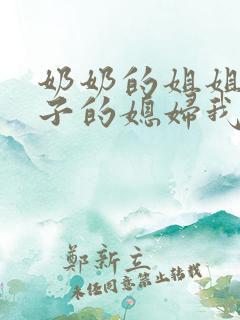 奶奶的姐姐
子的媳婦我
鄭新立
未经同意禁止转载